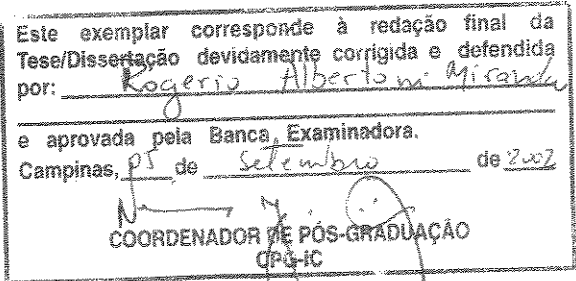 Este exemplar corresponde à redação final da
Tese/Dissertação devidamente corrigida e defendida
por: Rogerio Albertoni Miranda
e aprovada pela Banca Examinadora.
Campinas, 05 de Setembro de 2002
COORDENADOR DE PÓS-GRADUAÇÃO
CPG-IC